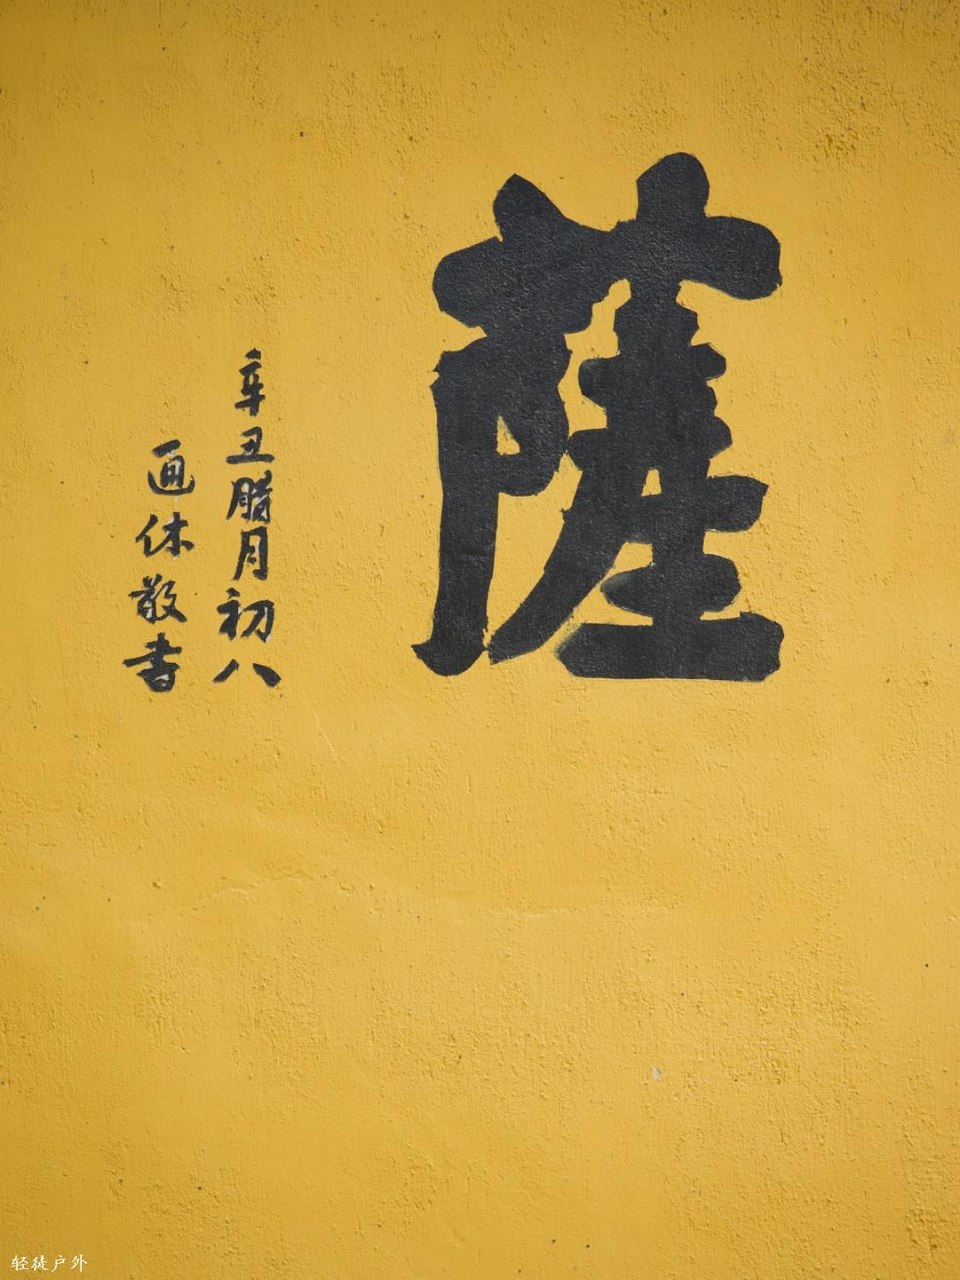 薩
辛丑腊月初八
通休敬書
轻徒户外